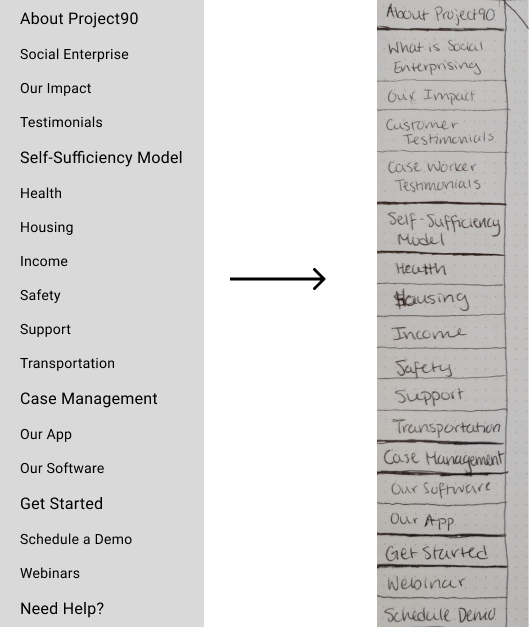 About Project90
Social Enterprise
Our Impact
Testimonials
Self-Sufficiency Model
Health
Housing
Income
Safety
Support
Transportation
Case Management
Our App
Our Software
Get Started
Schedule a Demo
Webinars
Need Help?
About Project90
What is Social
Enterprising
Our Impact
Customer
Testimonials
Case Worker
Testimonials
Self-Sufficiency
Model
Health
Housing
Income
Safety
Support
Transportation
Case Management
Our Software
Our App
Get Started
Webinar
Schedule Demo